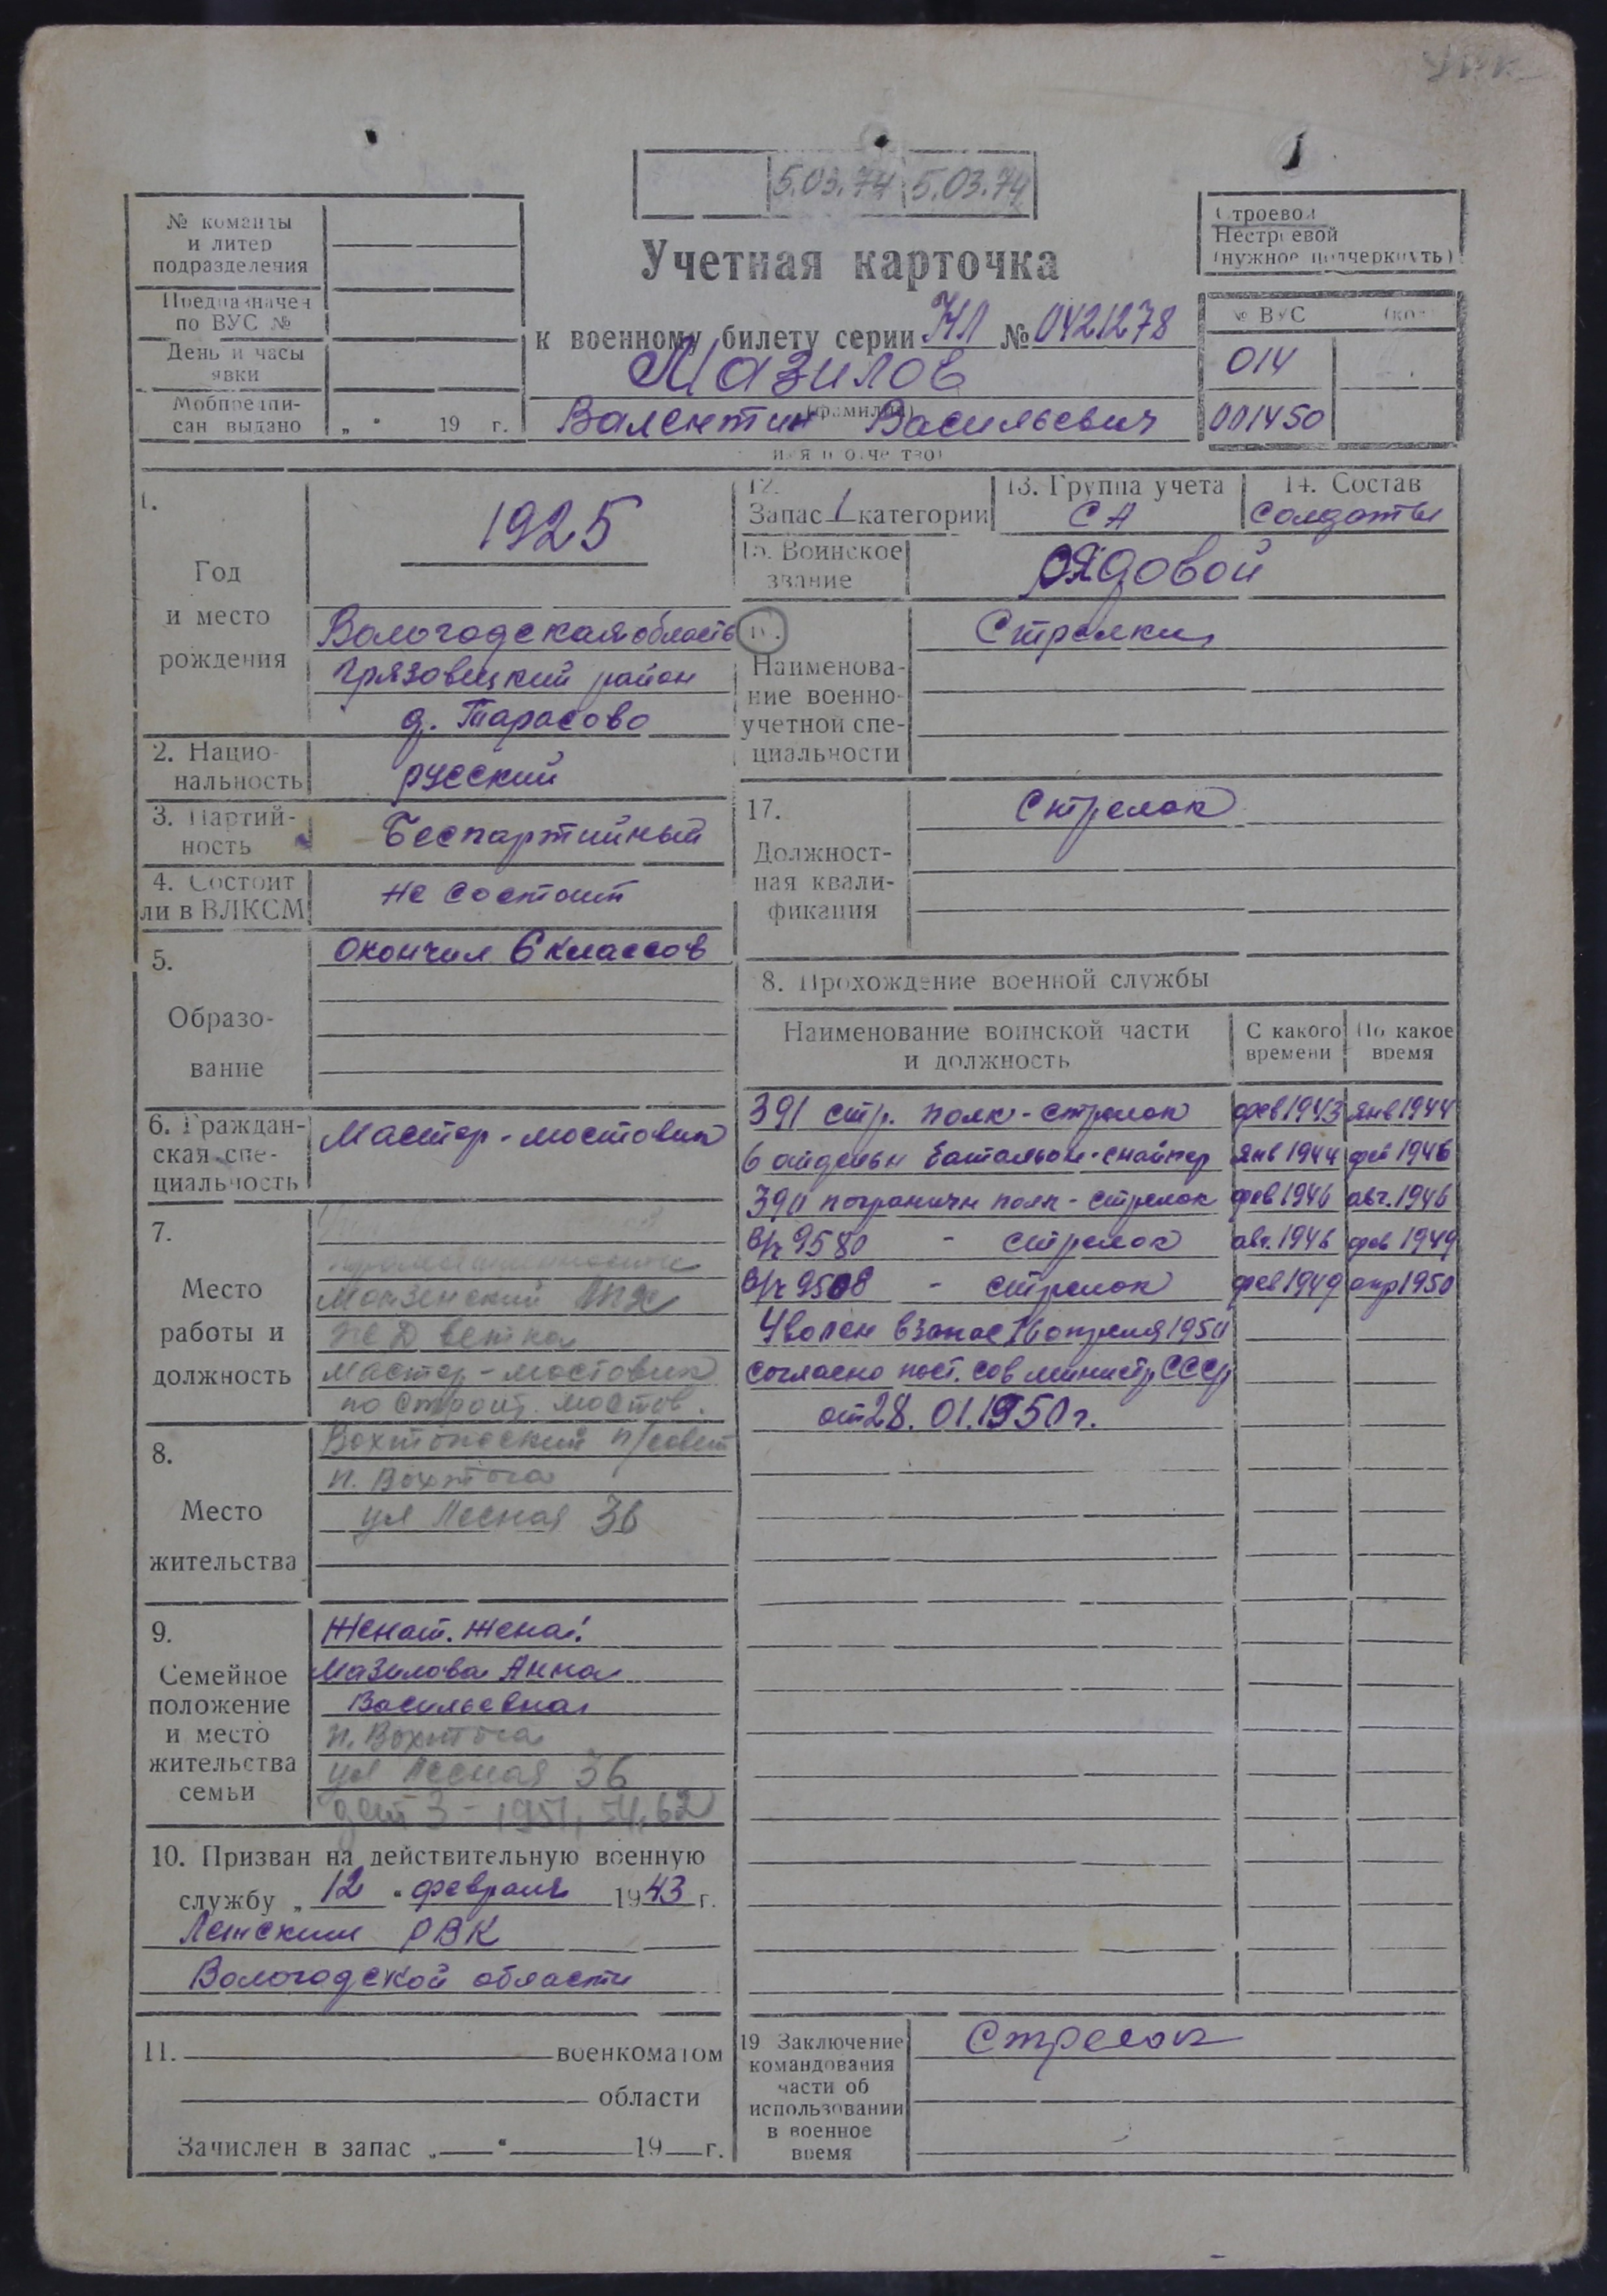 5.03.74 5.03.74
№ команды
и литер
подразделения
Предназначен
по ВУС №
День и часы
явки
Мобпредпи-
сан выдано „ " 19 г.
Учетная карточка
к военному билету серии НЛ № 0421278
Мазилов
(фамилия)
Валентин Васильевич
(имя и отчество)
Строевой
Нестроевой
(нужное подчеркнуть)
№ ВУС
014
001450
1.
Год
и место
рождения
1925
Вологодская область
Грязовецкий район
д. Тарасово
2. Нацио-
нальность
русский
3. Партий-
ность
Беспартийный
4. Состоит
ли в ВЛКСМ
не состоит
5.
Образо-
вание
Окончил 6 классов
6. Граждан-
ская спе-
циальность
Мастер-мостовик
7.
Место
работы и
должность
Монзенский ЛПХ
ЖД ветка
мастер-мостовик
по строит. мостов.
8.
Место
жительства
Вохтожский п/совет
п. Вохтога
ул Лесная 36
9.
Семейное
положение
и место
жительства
семьи
Женат. Жена:
Мазилова Анна
Васильевна
п. Вохтога
ул Лесная 36
дет 3 - 1951, 54, 62
10. Призван на действительную военную
службу „ 12 " февраля 1943 г.
РВК
Вологодской области
11. военкоматом
области
Зачислен в запас „ " 19 г.
12.
Запас 1 категории
13. Группа учета
СА
14. Состав
солдаты
15. Воинское
звание
рядовой
16.
Наименова-
ние военно-
учетной спе-
циальности
Стрелки
17.
Должност-
ная квали-
фикация
Стрелок
8. Прохождение военной службы
Наименование воинской части
и должность
С какого
времени
По какое
время
391 стр. полк - стрелок фев 1943 янв 1944
6 отдельн батальон - снайпер янв 1944 фев 1946
390 погранични полк - стрелок фев 1946 авг. 1946
в/ч 9580 - стрелок авг. 1946 фев 1949
в/ч 9508 - стрелок фев 1949 апр 1950
Уволен в запас 16 апреля 1950
согласно пост. сов министр СССР
от 28.01.1950 г.
19 Заключение
командования
части об
использовании
в военное
время
Стрелок